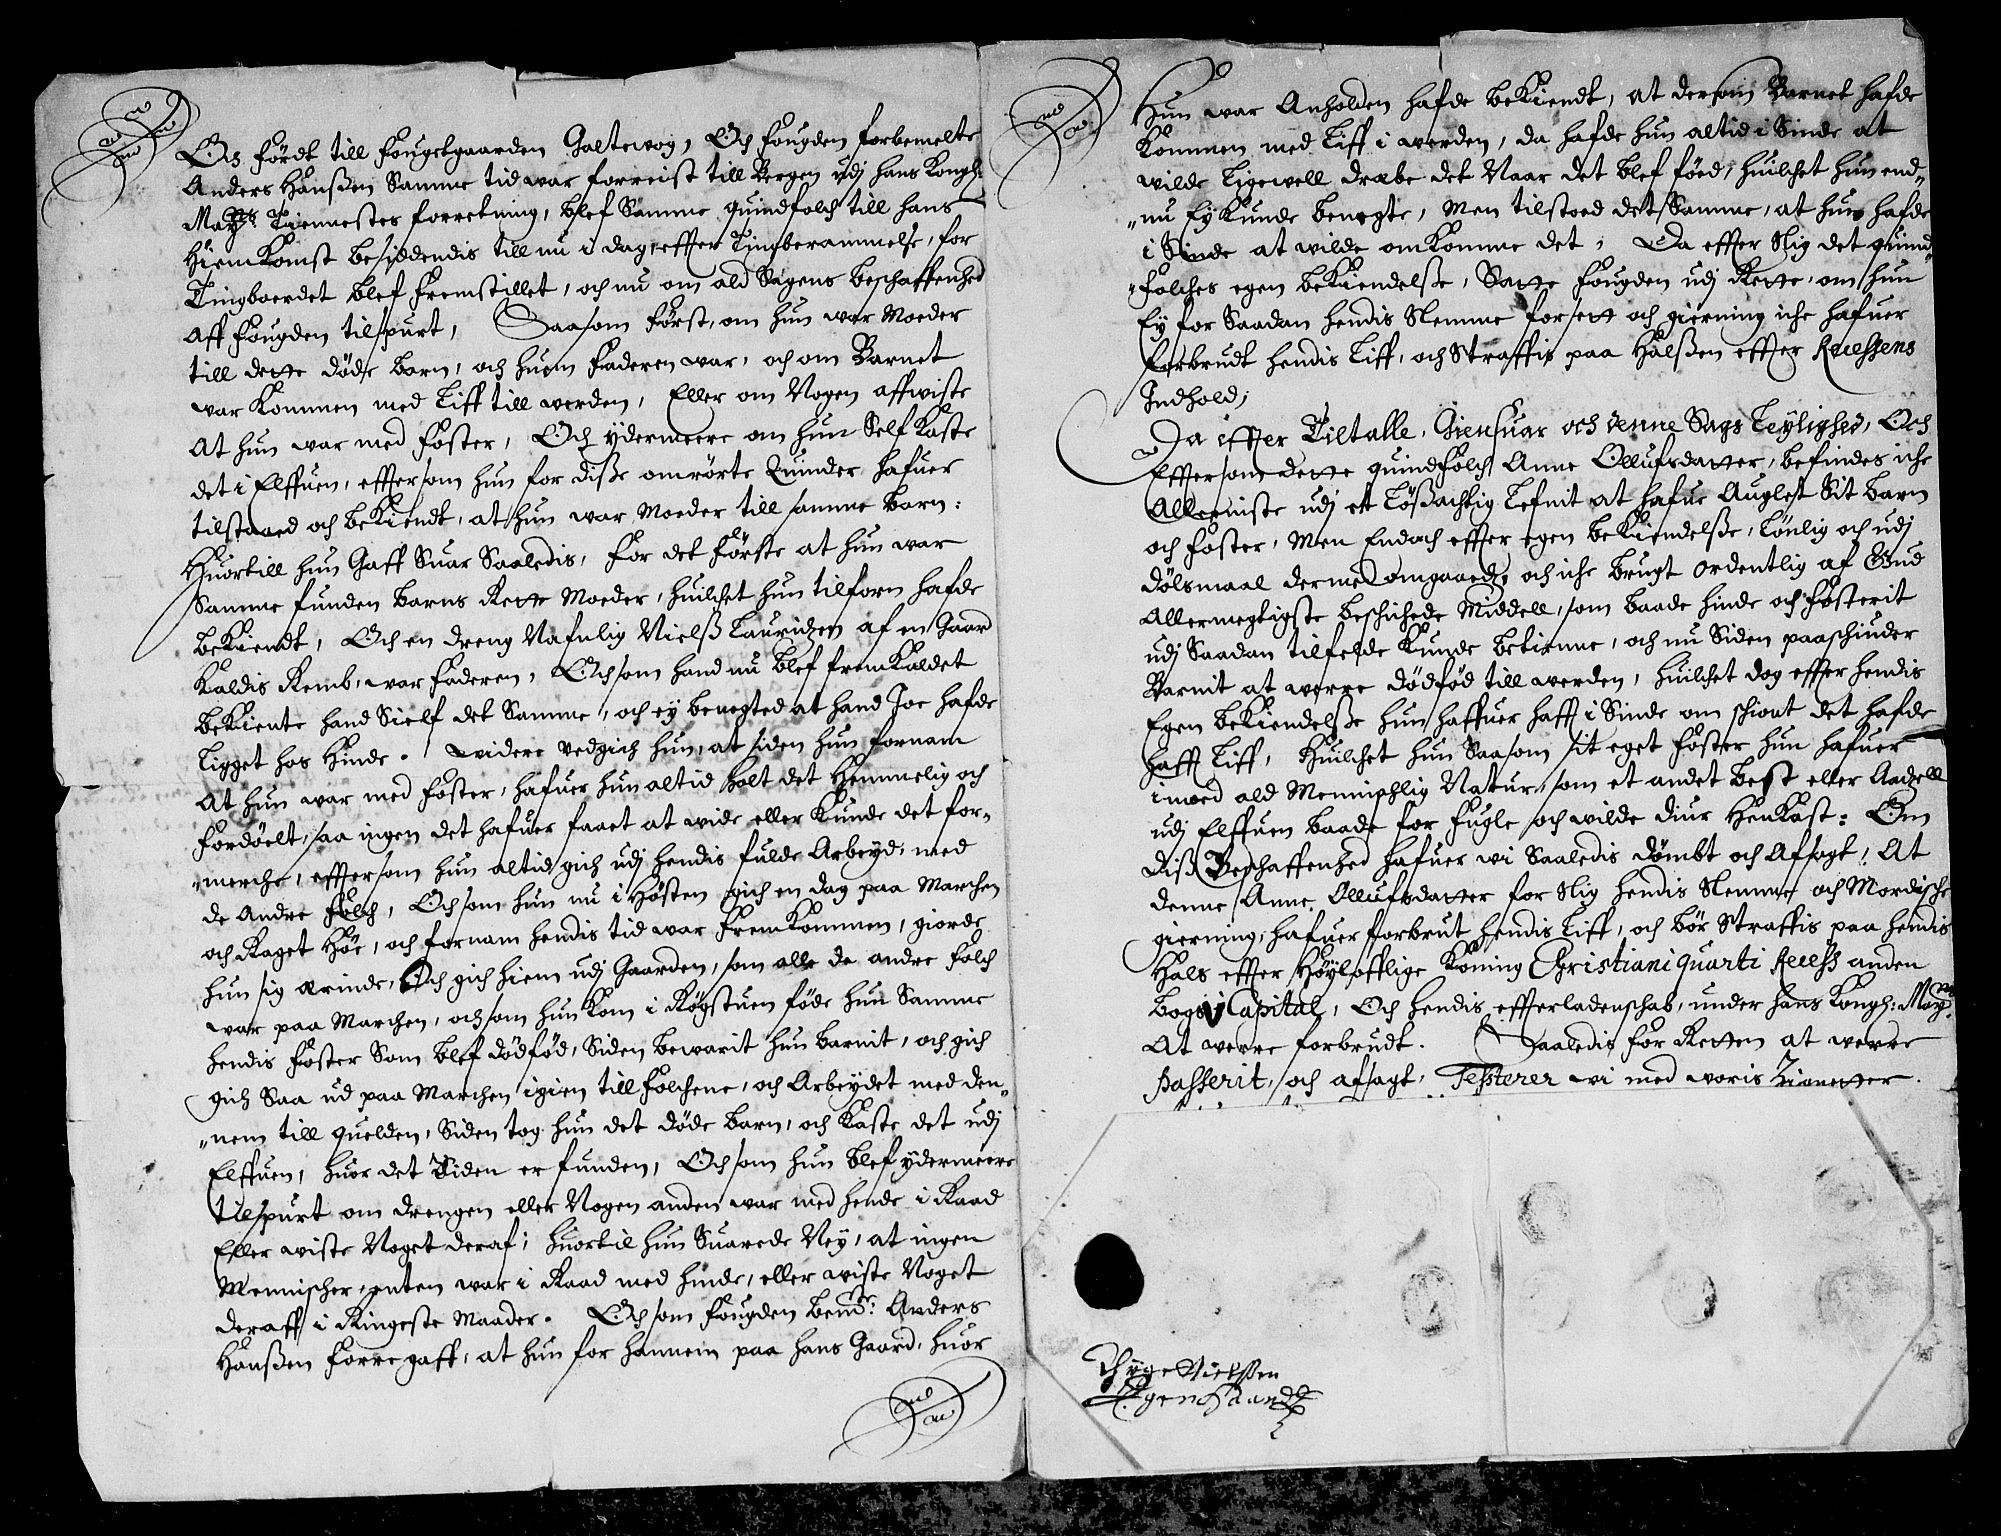 Och fördt till Fougetgaarden Galtewog, Och fougden forbemelte
Anders Hanßen Samme tid war forreist till Bergen udj hans Kongl:
Mayts: Tiennestes forretning, blef Samme quindfolch till hans
Hiemkomst besiddendis till nu i dag, effter Tingberammelse, for
Tingboerdet blef fremstillet, och nu om ald Sagens beschaffenhed
aff fougden tilspurt, Saasom först, om hun war Moeder
till dette döde barn, och huem faderen war, och om Barnet
war kommen med Liff till werden, Eller om Nogen affwiste
At hun war med foster, Och ydermeere om hun Self kaste
det i Elffuen, effter som hun for disse omrörte Quinder hafuer
tilstaaed och bekiendt, at hun war Moeder till samme barn:
Huortill hun Gaff Suar Saaledis, for det förste at hun war
Samme funden barns Rette Moeder, huilchet hun tilforn hafde
bekiendt, Och en dreng Nafnlig Nielß Lauridzen af en Gaard
kaldis Remb, war faderen, Och som hand nu blef fremkaldet
bekiente hand Sielf det Samme, och ey benegted at hand Joe hafde
Ligget hos hinde. widere wedgich hun, at siden hun fornam
At hun war med foster, hafuer hun altid holt det hemmelig och
fordöelt, saa ingen det hafuer faaet at wide eller kunde det for-
merche, efftersom hun altid gich udj hendis fulde Arbeyd, med
de andre folch, Och som hun nu i Hösten gich en dag paa Marchen
och Raget Höe, och fornam hendis tid war fremkommen, giorde
hun sig ærinde, Och gich hiem udj Gaarden, som alle de andre folch
war paa Marchen, och som hun kom i Rögstuen föde hun Samme
hendis foster Som blef dödföd, Siden bewarit hun barnit, och gich
gich Saa ud paa Marchen igien till folchene, och Arbeydet med den-
nem till quelden, Siden tog hun det döde barn, och kaste det udj
Elffuen, huor det Siden er funden, Och som hun blef ydermeere
tilspurt om drengen eller Nogen anden war med hende i Raad
Eller wiste Noget deraf; huortil hun Suarede Ney, at ingen
Mennischer enten war i Raad med hinde, eller wiste Noget
deraff i Ringeste Maader. Och som fougden bemte: Anders
Hanßen forregaff, at hun for hannem paa hans Gaard, huor
Hun war Anholden hafde bekiendt, at dersom Barnet hafde
kommen med Liff i werden, da hafde hun altid i Sinde at
wilde Ligewell dræbe det Naar det blef föed, huilchet hun end-
nu Ey kunde benegte, Men tilstoed det Samme, at hun hafde
i Sinde at wilde omkomme det; Da effter Slig det quind-
folches egen bekiendelße, Satte fougden udj Rette, om hun
Ey for Saadan hendis Slemme forsett och gierning iche hafuer
forbrudt hendis Liff, och Straffis paa Halßen effter Recessens
Indhold;
Da effter Tiltalle, Giensuar och denne Sags Leylighed, Och
Efftersom dette quindfolch Anne Ollufsdatter, befindes iche
Alleeniste udj et Lößachtig Lefnit at hafueAuglet Sit barn
och foster, Men Endoch effter egen bekiendelße, Lönlig och udj
dölsmaal dermed omgaaedt, och iche brugt ordentlig af Gud
Allermegtigste beschichede Middell, som baade hinde och fosterit
udj Saadan tilfelde kunde betienne, och nu Siden paaschiuder
Barnit at werre dödföd till werden, huilchet dog effter hendis
Egen bekiendelße hun haffuer hafft i Sinde om schiout det hafde
hafft Liff, Huilchet hun Saasom sit eget foster hun hafuer
imoed ald Mennischlig Natur, som et andet best eller Aadzell
udj Elffuen baade for fugle och wilde diur Henkast: Om
diß Beschaffenhed hafuer wi Saaledis dömbt och Afsagt, At
denne Anne Ollufsdatter for Slig hendis Slemme och Mordische
gierning, hafuer forbrut hendis Liff, och bör Straffis paa hendis
Hals effter Höyloffлige Koning Christiani quarti Recess anden
Bogs V Capital, Och hendis effterladenschab, under hans Kongl: Mayts:
At werre forbrudt. Saaledis for Retten at werre
passerit, och afsagt, Testerer wi med woris Zignetter.
Thyge Nielßen
Egenhaandt